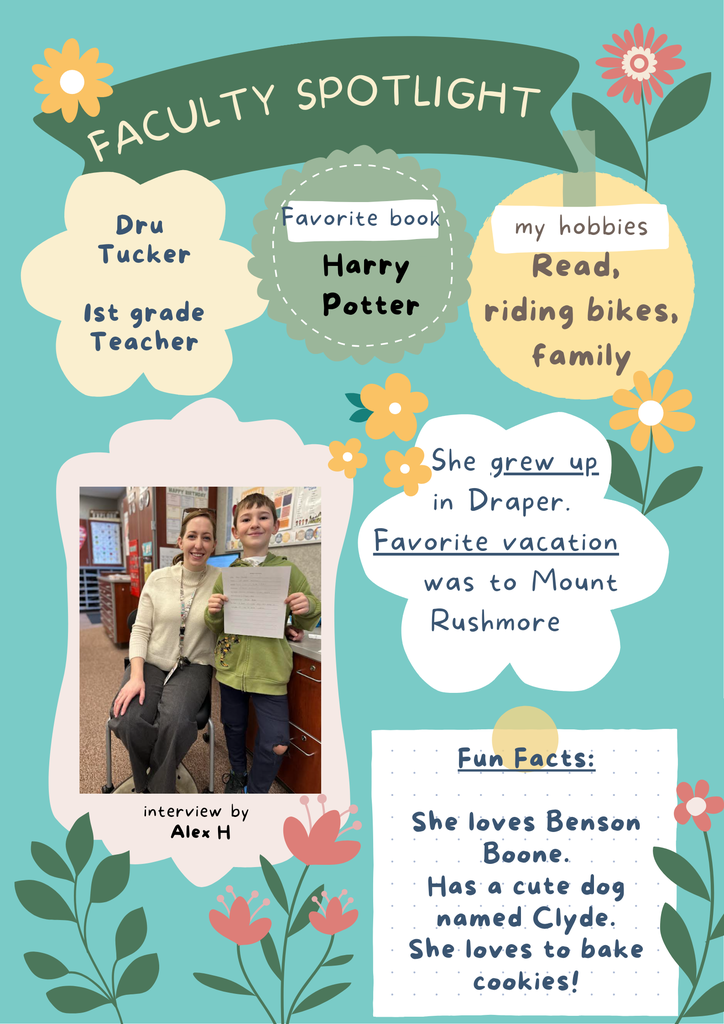 FACULTY SPOTLIGHT
Dru
Tucker
1st grade
Teacher
Favorite book
Harry
Potter
my hobbies
Read,
riding bikes,
family
She grew up
in Draper.
Favorite vacation
was to Mount
Rushmore
HAPPY BIRTHDAY
interview by
Alex H
Fun Facts:
She loves Benson
Boone.
Has a cute dog
named Clyde.
She loves to bake
cookies!